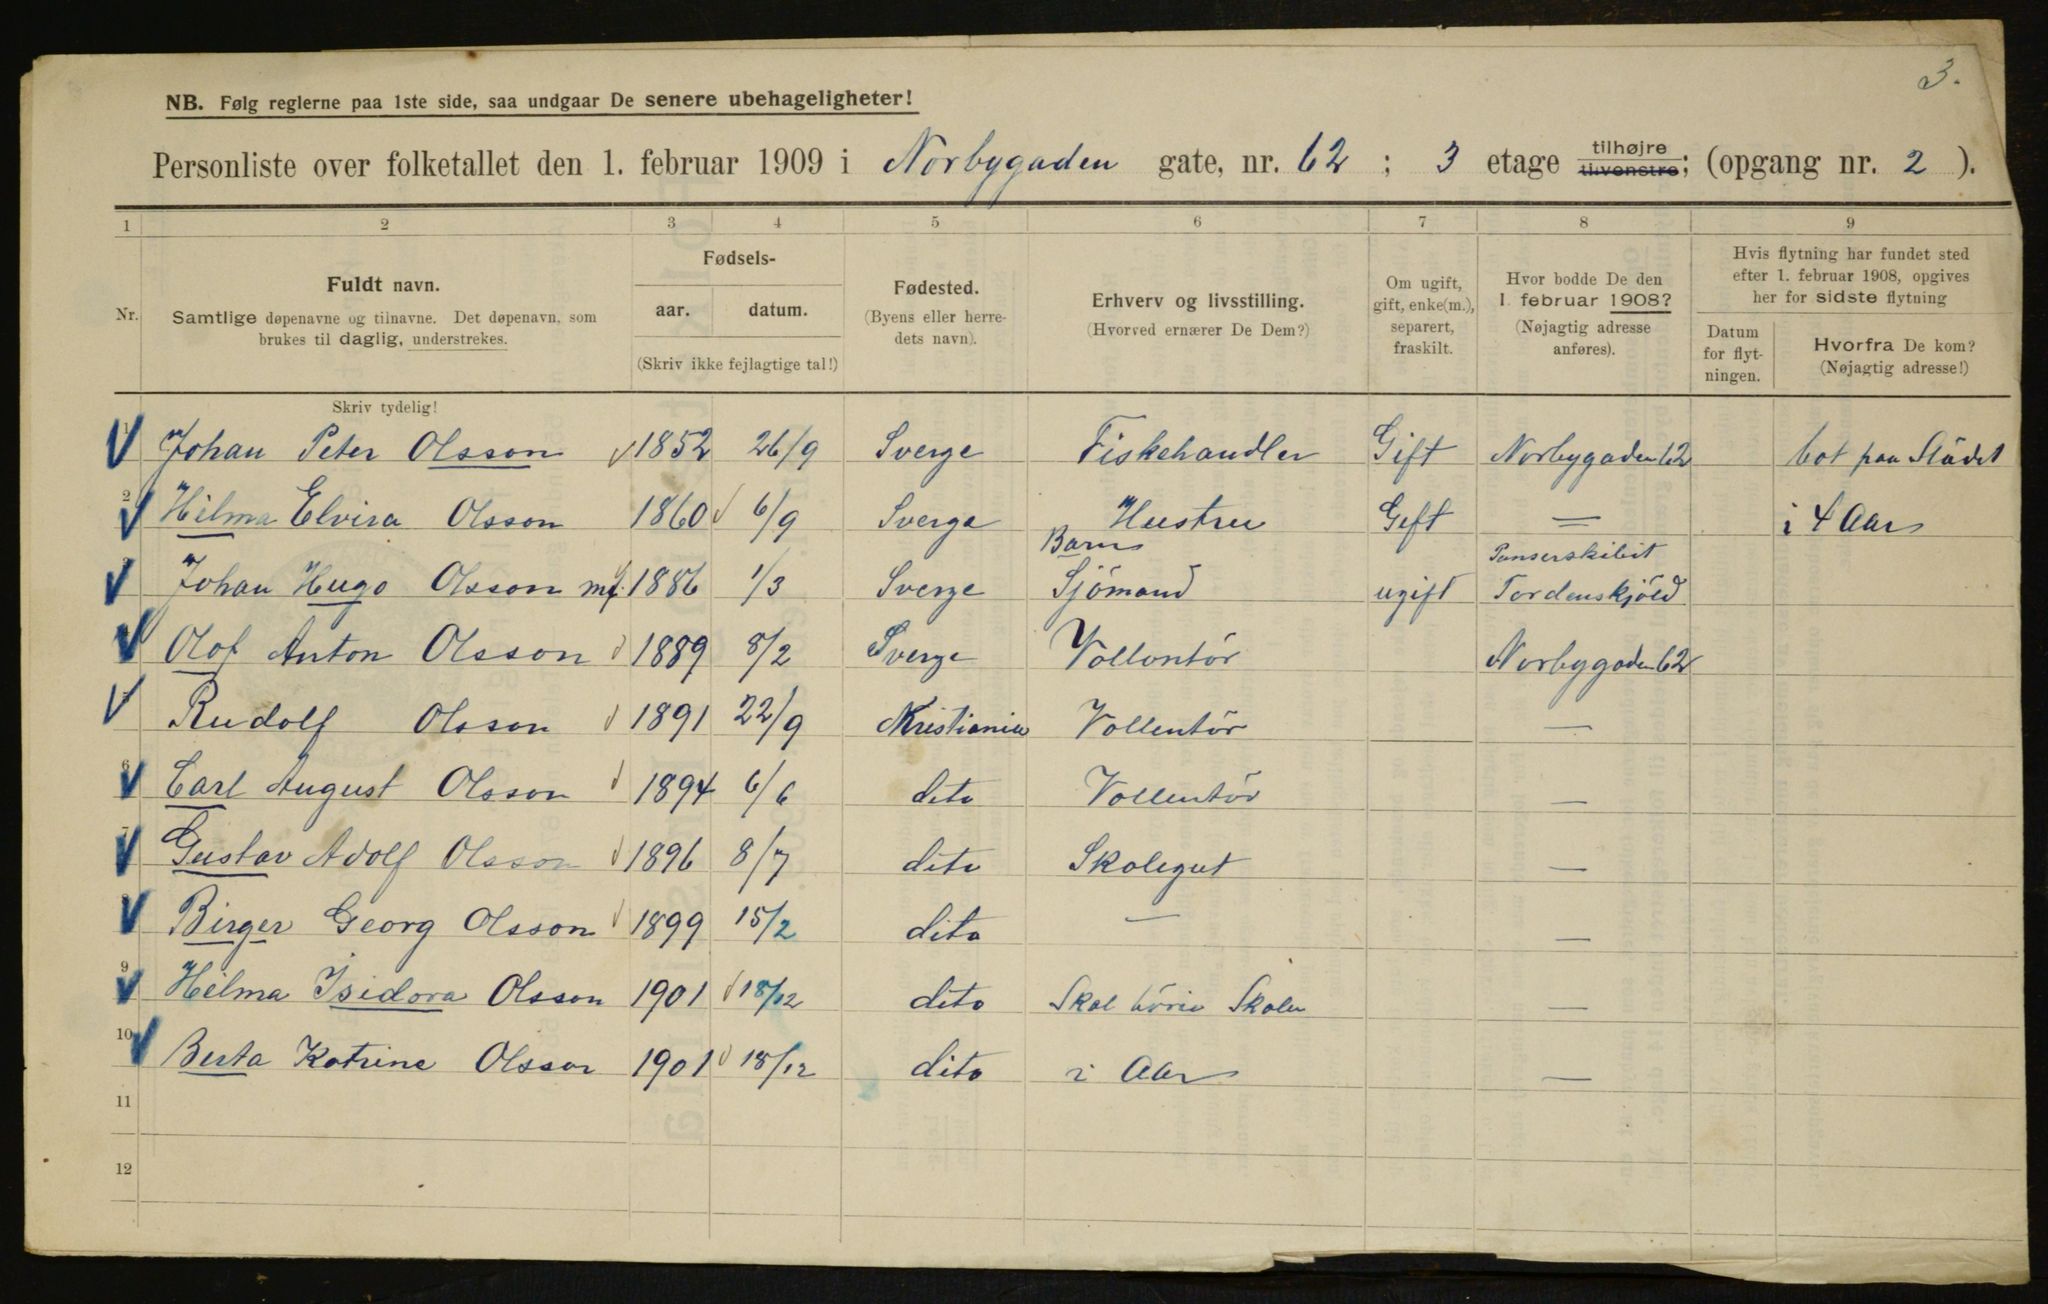 3.
NB. Følg reglerne paa 1ste side, saa undgaar De senere ubehageligheter!
Personliste over folketallet den 1. februar 1909 i Norbygaden gate, nr. 62 ; 3 etage tilhøjre tilvenstre; (opgang nr. 2 ).
1 2 3 4 5 6 7 8 9
Nr.
Fuldt navn.
Samtlige døpenavne og tilnavne. Det døpenavn, som
brukes til daglig, understrekes.
Fødsels-
aar. datum.
(Skriv ikke fejlagtige tal!)
Fødested.
(Byens eller herre-
dets navn).
Erhverv og livsstilling.
(Hvorved ernærer De Dem?)
Om ugift,
gift, enke(m.),
separert,
fraskilt.
Hvor bodde De den
1. februar 1908?
(Nøjagtig adresse
anføres).
Hvis flytning har fundet sted
efter 1. februar 1908, opgives
her for sidste flytning
Datum
for flyt-
ningen.
Hvorfra De kom?
(Nøjagtig adresse!)
Skriv tydelig!
1 Johan Peter Olsson 1852 26/9 Sverge Fiskehandler Gift Norbygaden 62 bot paa Städet
2 Hilma Elvira Olsson 1860 6/9 Sverge Hustru Gift = i 4 Aar
Barn Panserskibet
Johan Hugo Olsson 1886 1/3 Sverge Sjömand ugift Tordenskjöld
Olof Anton Olsson 1889 8/2 Sverge Vollontör Norbygaden 62
Rudolf Olsson 1891 22/9 Kristiania Vollentör —
6 Carl August Olsson 1894 6/6 dito Vollentör —
7 Gustav Adolf Olsson 1896 8/7 dito Skolegut —
Birger Georg Olsson 1899 15/2 dito — —
9 Hilma Isidora Olsson 1901 18/12 dito Skal Skolen —
10 Berta Katrine Olsson 1901 18/12 dito i Aar —
11
12